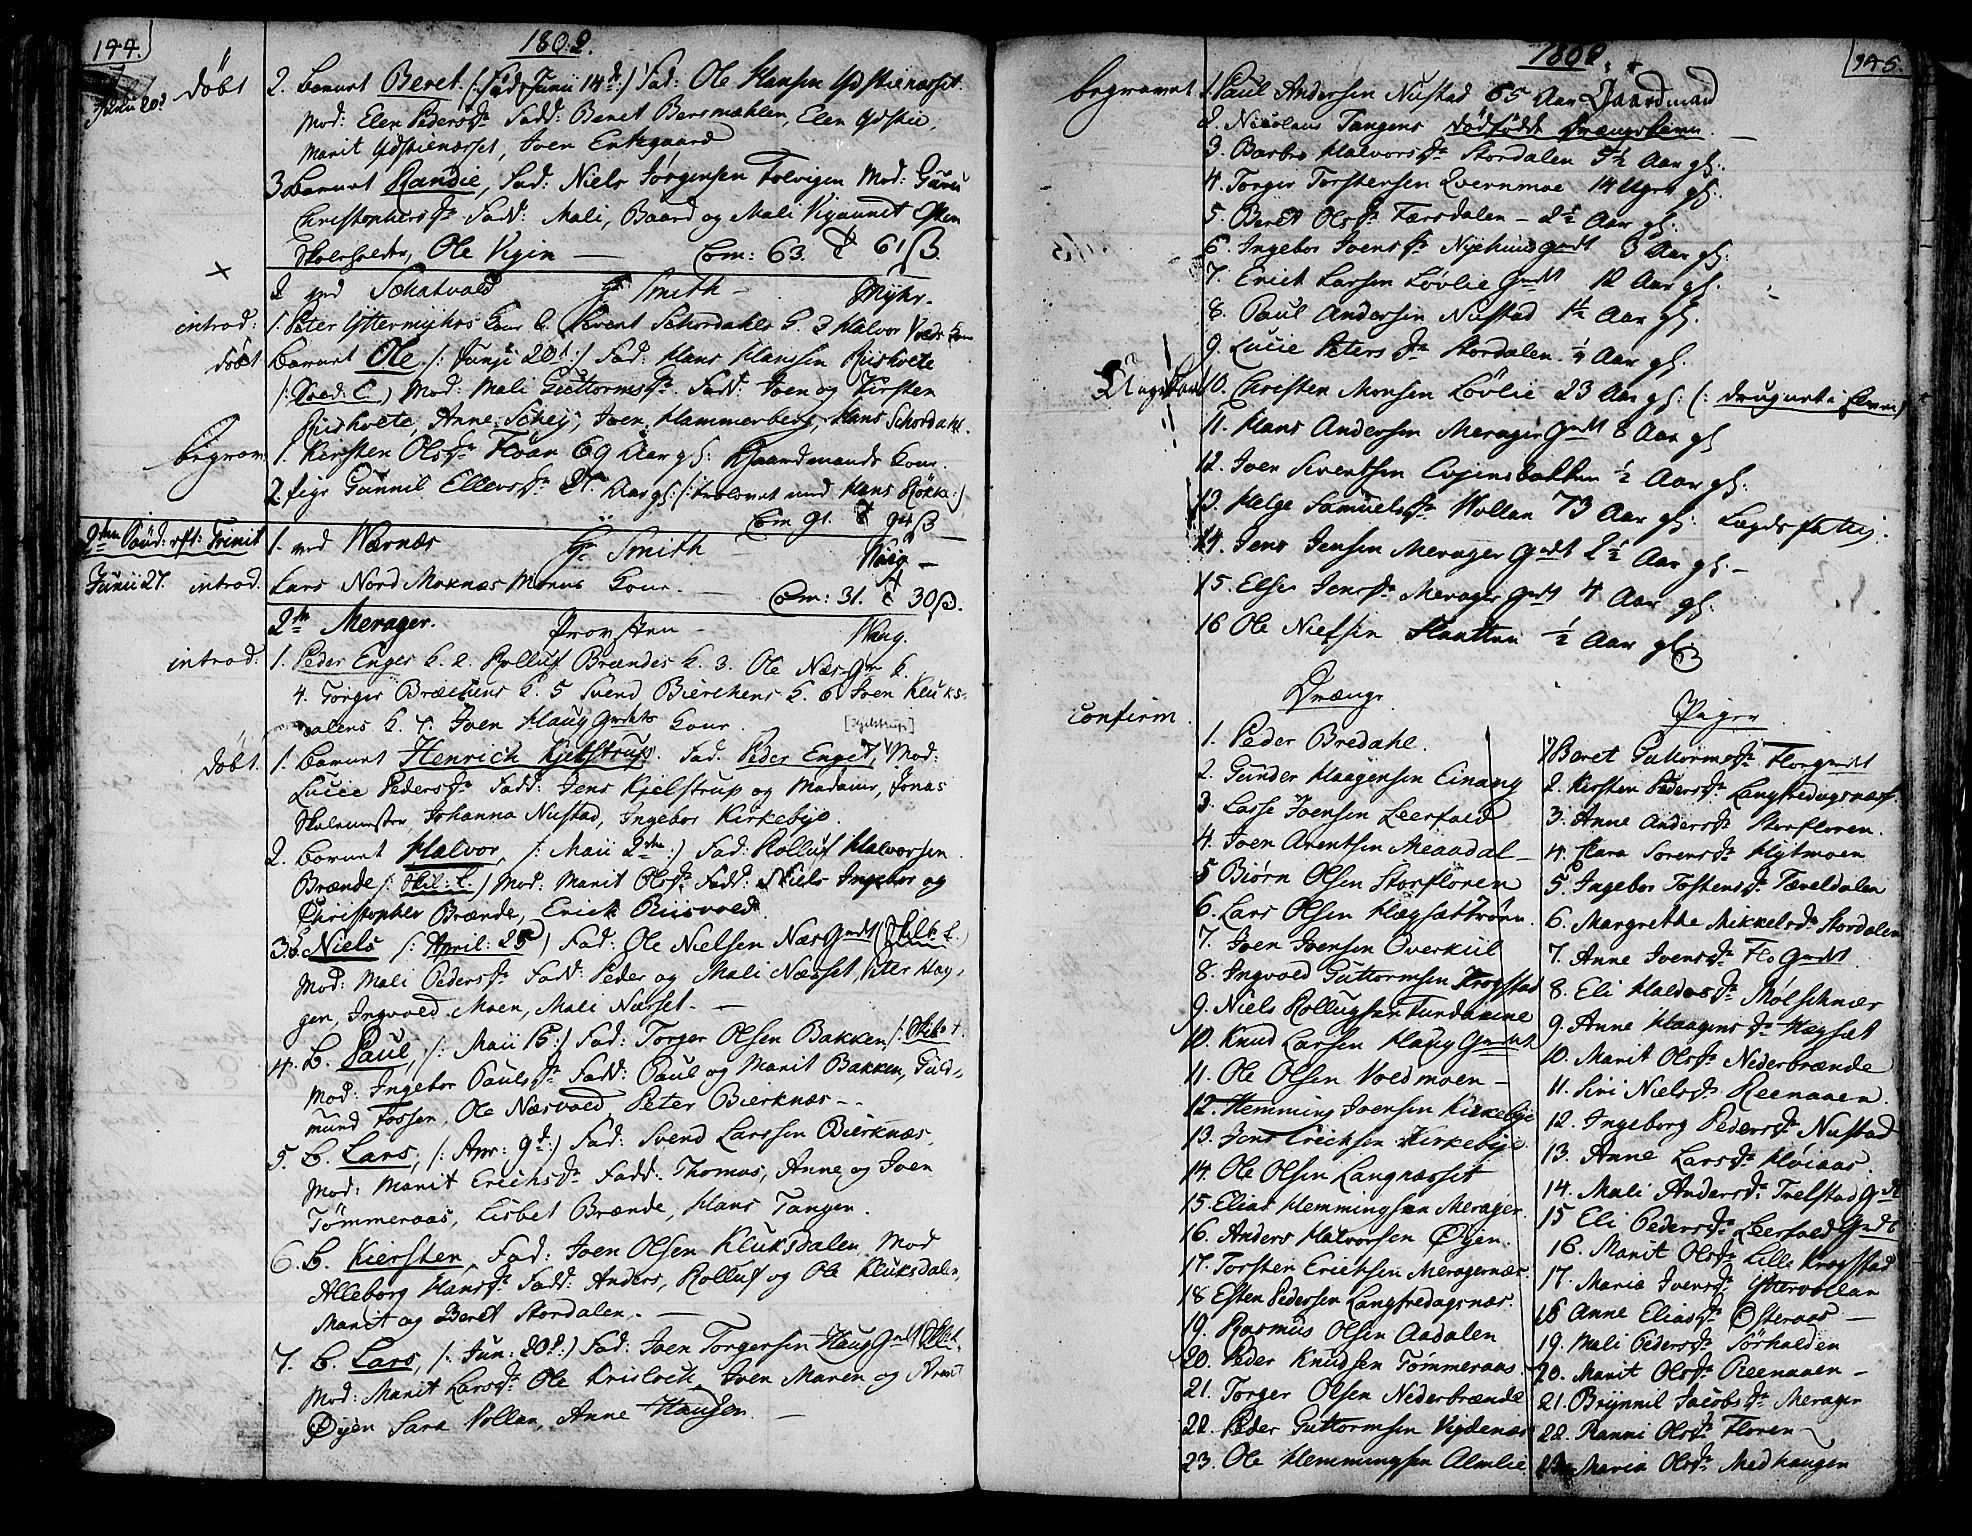 144.
1802.
Junii 20?
døbt
2. Barnet Beret. /: fød Junii 14d :/ Fad: Ole Hansen Ydstienæsset
Mod: Elen Pedersdr Fadd: Beret Bersmæhlen, Elen Ydstie,
Marit Ydstienæsset, Iven Entegaard
3 Barnet Randie, Fad: Niels Jørgensen Folvigen Mod: Guru
Christophersdr Fadd: Mali, Baard og Mali Vigaunet Esten
Skoleholder, Ole Vigen — Com: 63. 61 ß.
2 ved Schatvold Hr Smith — Myhr.
introd: 1. Peter Yttermyhrs Kone 2. Sivert Schordahls K. 3 Halvor
døbt Barnet Ole /: Junii 20 :/ Fad: Hans Hanssen Riskvete
Mod: Mali Guttormsdr. Fadd: Iven og Kirsten
Riskvete, Anne Schey, Iven Hammerberg, Hans Schordahl.
begrav: 1. Kirsten Olsdr Floan 69 Aar gl: Gaardmands Kone.
2 Pige Gunnil Ellevsdr Aar gl: /: trolovet med Hans Røkke :/
Com 91. 94 ß
2den Sønd: eft: Trinit
1. ved Wærnæs Hr Smith — Haug —
Junii 27. introd. Lars Nord Moxnæs Monus Kone. — Com: 31. 30 ß.
2de Merager. Provsten — Haug.
introd: 1. Peder Enges K. 2. Rolluf Brændes K. 3. Ole Næs K.
4. Torger Bræchens K. 5 Svend Bierchens K. 6 Iven Kluks-
dalens K. 7. Iven Haug Gmdts Kone. [Kjelstrup]
døbt. 1. Barnet Henrich Kjelstrup. Fad. Peder Enget, Mod:
Lucie Pedersdr Fadd: Jens Kjelstrup og Madame, Jonas
Skolemester, Johanna Nustad, Ingebor Kirkebye.
2. Barnet Halvor, /: Maii 2den :/ Fad: Rolluf Halvorsen
Brænde Mod: Marit Olsdr Fadd: Niels Ingebor og
Christopher Brænde, Erick Riisvold.
3. B. Niels /: April: 25 / Fad: Ole Nielsen Næs Gmdt
Mod: Mali Pedersdr Fadd: Peder og Mali Næsset, Peter Hag-
gen, Ingvold Moen, Mali Næsset. —
4. B. Paul, /: Maii 15 :/ Fad: Torger Olsen Bakken
Mod: Ingebor Paulsdr Fadd: Paul og Marit Bakken, Guld-
mund Fossen, Ole Næsvold Peter Bierknæs —
5. B. Lars, /: Apr: 9d :/ Fad: Svend Larssen Bierknæs.
Mod: Marit Erichsdr Fadd: Thomas, Anne og Iven
Tømmeraas, Lisbet Brænde, Hans Tangen.
6. B. Kiersten, Fad: Iven Olsen Kluksdalen Mod
Alleborg Hansdr Fadd: Anders, Rolluf og Ole Kluksdalen,
Marit og Beret Stordalen. —
7. B. Lars, /: Jun: 20 :/ Fad: Iven Torgersen Haug Gmdt
Mod: Marit Larsdr Ole Iven Maren og
Øyen Sara Vollan, Anne Haugen. —
1802.
145.
begravet 1. Paul Andersen Nustad 65 Aar Gaardmand
2. Nicolaus Tangens dødfødt Drængebarn. —
3. Barbro Halvorsdr Stordalen 5½ Aar gl:
4. Torger Torstensen Qvernmoe 14 Uger gl.
5. Beret Olsdr Færsdalen — 2½ Aar gl.
6. Ingebor Ivensdr Nyehuus Gmdt 3 Aar gl.
7. Erich Larsen Løvlie Gmdt 12 Aar gl.
8. Paul Andersen Nustad 1½ Aar gl.
9. Lucie Petersdr Stordalen ¼ Aar gl.
Ungekarl 10. Christen Monsen Løvlie 23 Aar gl: (: druknet i Elven)
11. Hans Andersen Merager Gmdt 8 Aar gl
12. Iven Sivertsen ½ Aar gl.
13. Helge Samuelsdr Wollan 73 Aar gl: Lægdsfattig.
14. Jens Jensen Merager Gmdt 2½ Aar gl. —
15. Else Jensdr Merager Gmdt 4 Aar gl.
16 Ole Nielsen Slautten ½ Aar gl.
confirm.
Drænge
1. Peder Bredahl.
2. Gunder Haagensen Einang
3. Lasse Ivensen Leerfald
4. Iven Arentsen Meaadal —
5 Biørn Olsen Storfloren
6. Lars Olsen Hægsættrøen.
7. Iven Ivensen Overkiil
8. Ingvold Guttormsen Krogstad
9. Niels Rollugsen Fundaunne
10. Knud Larsen Haug Gmdt
11. Ole Olsen Voldmoen —
12. Hemming Ivensen Kirkebye
13. Jens Erichsen Kirkebye
14. Ole Olsen Langnæsset
15. Elias Hemmingsen Merager.
16. Anders Halvorsen Øyen.
17. Torsten Erichsen Meragernæs.
18 Esten Pedersen Langfredagsnæs.
19. Rasmus Olsen Aadalen
20. Peder Knudsen Tømmeraas.
21. Torger Olsen Nederbrænde
22. Peder Guttormsen Vigdenæs
23. Ole Hemmingsen Almlie
Piger
1 Beret Guttormsdr Flor Gmdt
2. Kirsten Pedersdr Langfredagsnæss
3. Anne Andersdr Storfloren.
4. Clara Sorensdr Hytmoen
5. Ingebor Tostensdr Tæveldalen
6. Margrethe Mikkelsdr Stordalen
7. Anne Ivensdr Flo Gmdt
8. Eli Haldosdr Mølschnær
9. Anne Haagensdr Hægset
10. Marit Olsdr Nederbrænde
11. Siri Nielsdr Reenaaen.
12. Ingeborg Pedersdr Nustad
13. Anne Larsdr Høiaas.
14. Mali Andersdr Trelstad Gmdt
15 Eli Pedersdr Leerfald Gmdt
16. Marit Olsdr Lille Krogstad
17. Maria Ivensdr Yttervollan
18 Anne Eliasdr Østeraas —
19. Mali Pedersdr Sørhalden
20. Marit Olsdr Reenaaen —
21. Brynnil Jacobsdr Merager
22. Ranni Olsdr Floren
23. Maria Olsdr Medhaugen